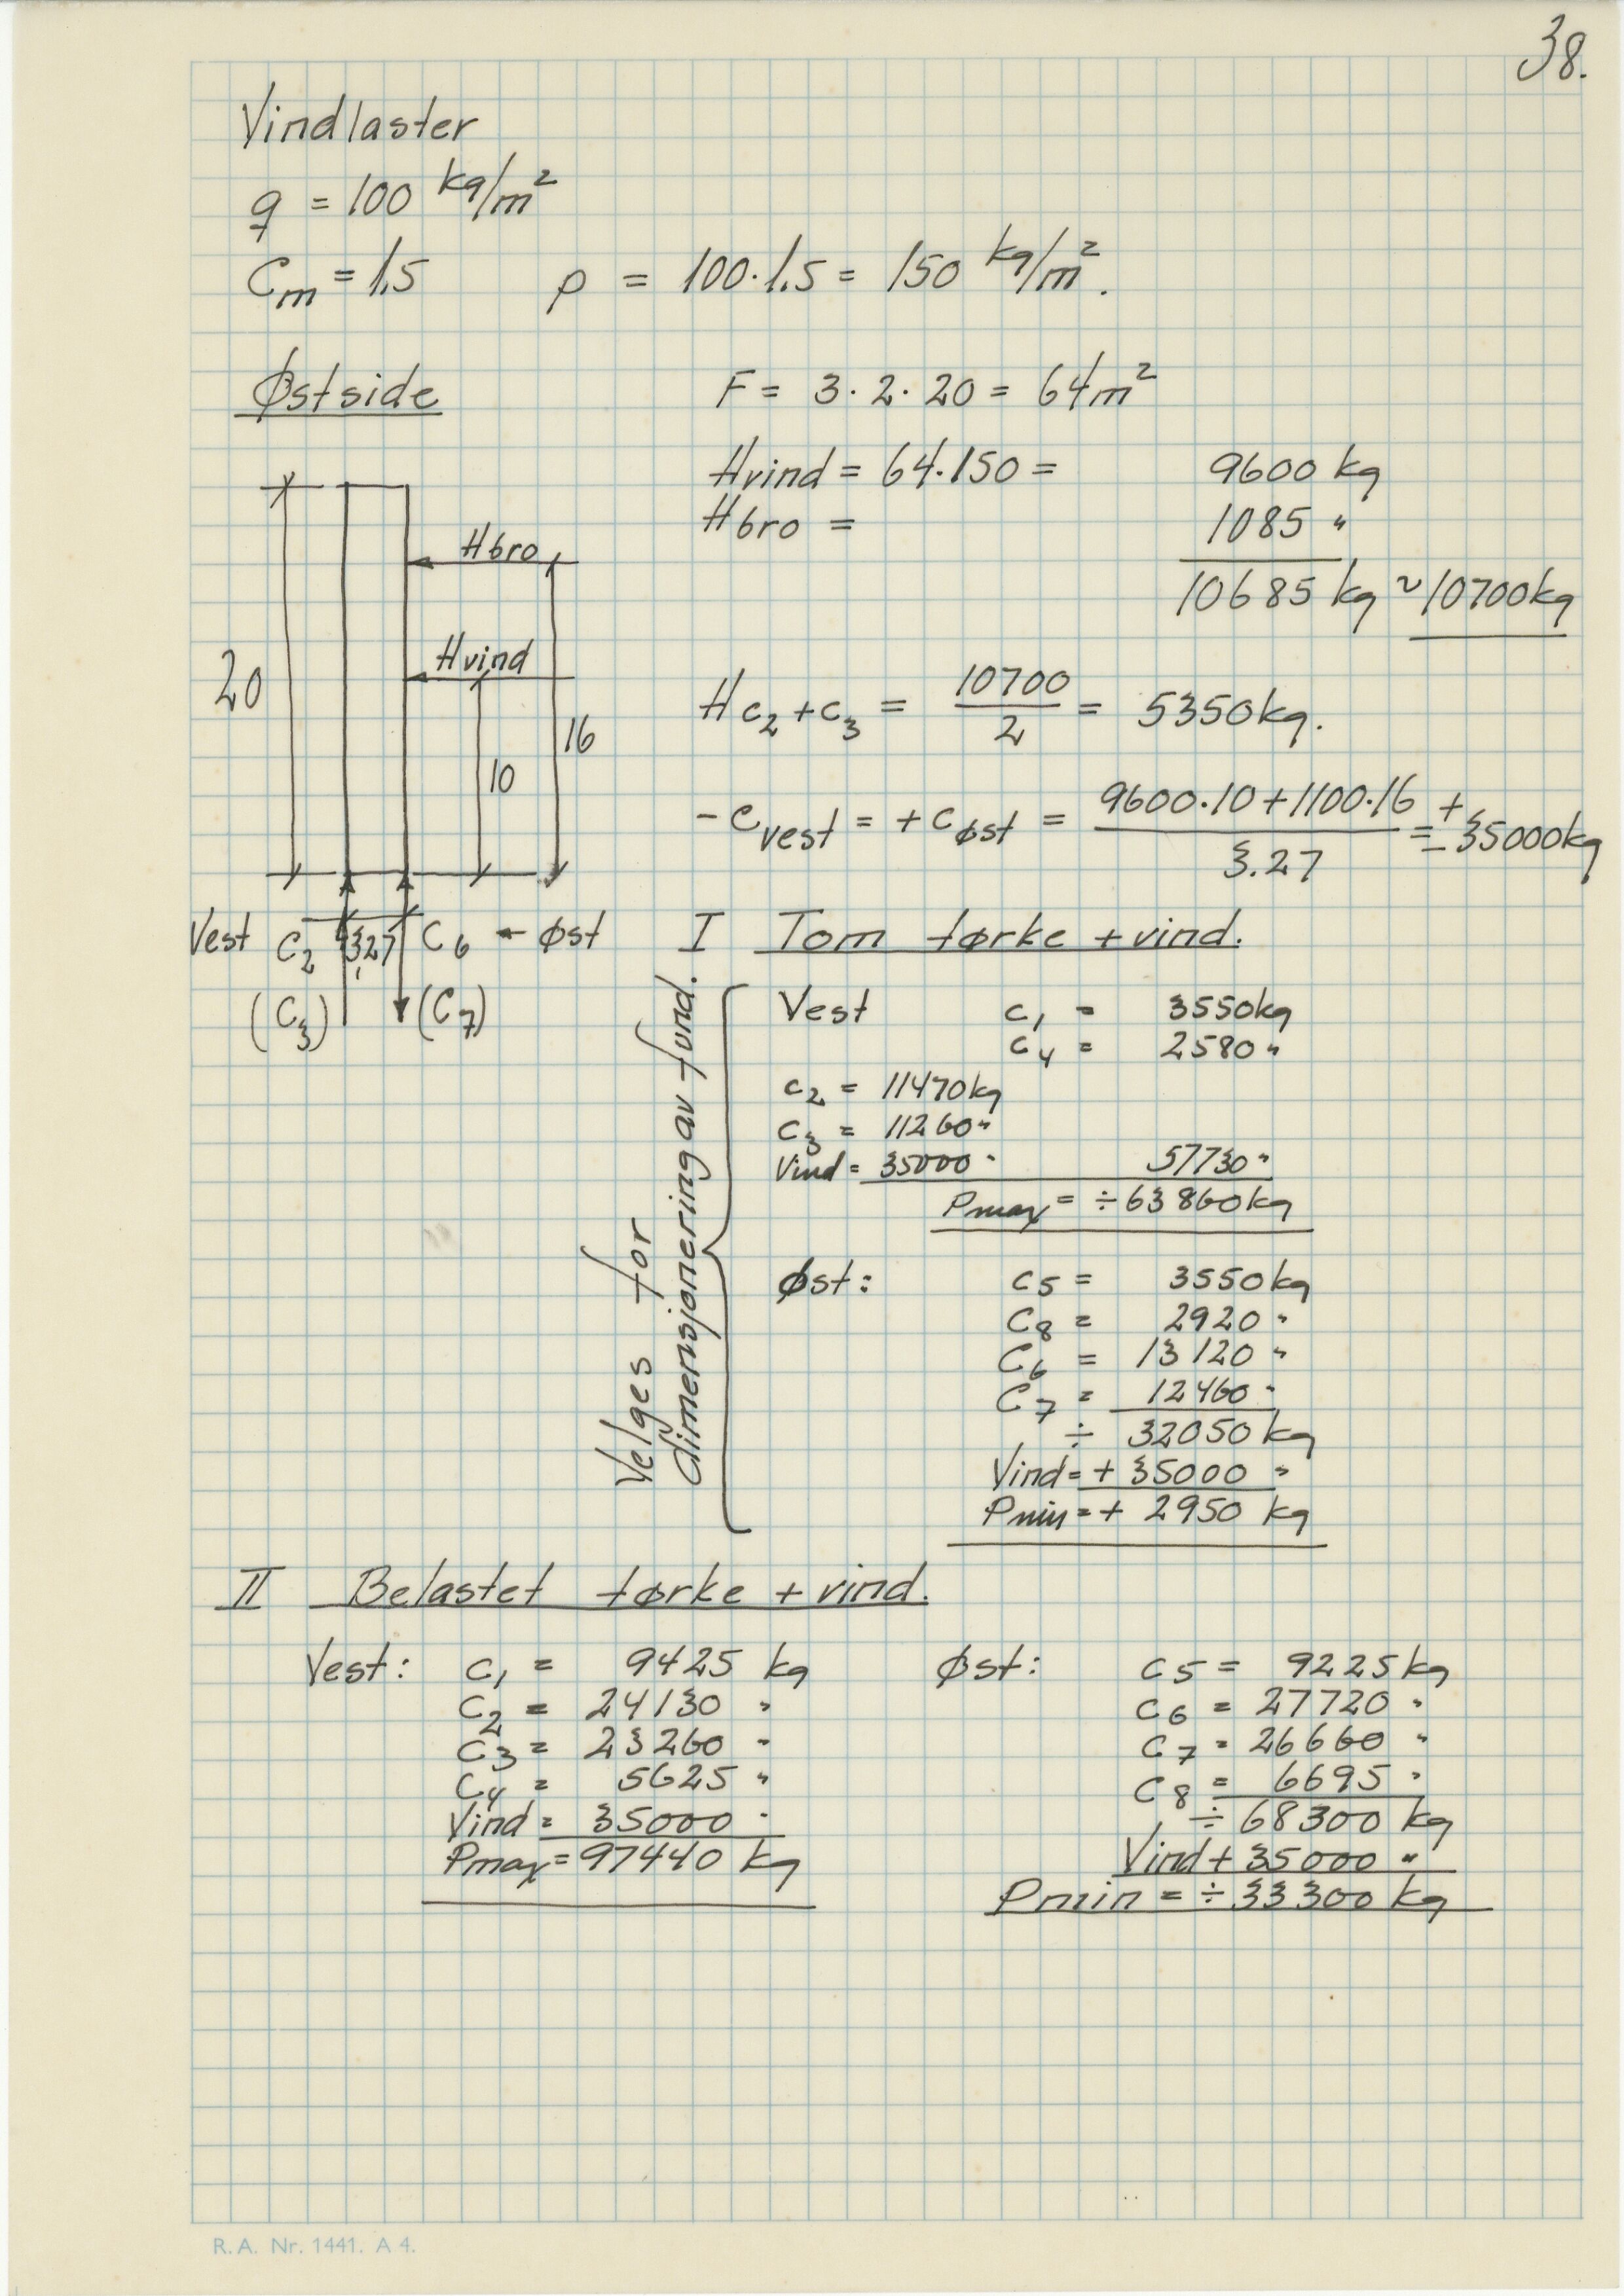 38.
Vindlaster
q = 100 kg/m²
Cm = 1.5 p = 100·1.5 = 150 kg/m².
Østside F = 3·2·20 = 64m²
Hvind = 64·150 = 9600 kg
Hbro = 1085 "
10685 kg ~ 10700kg
Hbro
Hvind
20
16
10
H c₂+c₃ = 10700/2 = 5350kg.
-Cvest = +Cøst = (9600·10+1100·16)/3.27 = ±35000kg
Vest C₂ 3,27 C₆ ← Øst
(C₃) (C₇)
I Tom tørke + vind.
Velges for
dimensjonering av fund.
Vest c₁ = 3550kg
c₄ = 2580 "
c₂ = 11470kg
c₃ = 11260 "
Vind = 35000 " 57730 "
Pmax = ÷63860kg
Øst: c₅ = 3550kg
C₈ = 2920 "
C₆ = 13120 "
C₇ = 12460 "
÷ 32050 kg
Vind = + 35000 "
Pmin = + 2950 kg
II Belastet tørke + vind.
Vest: c₁ = 9425 kg
C₂ = 24130 "
C₃ = 23260 "
C₄ = 5625 "
Vind = 35000 "
Pmax = 97440 kg
Øst: c₅ = 9225kg
C₆ = 27720 "
C₇ = 26660 "
C₈ = 6695 "
÷ 68300 kg
Vind + 35000 "
Pmin = ÷ 33300 kg
R.A. Nr. 1441. A 4.